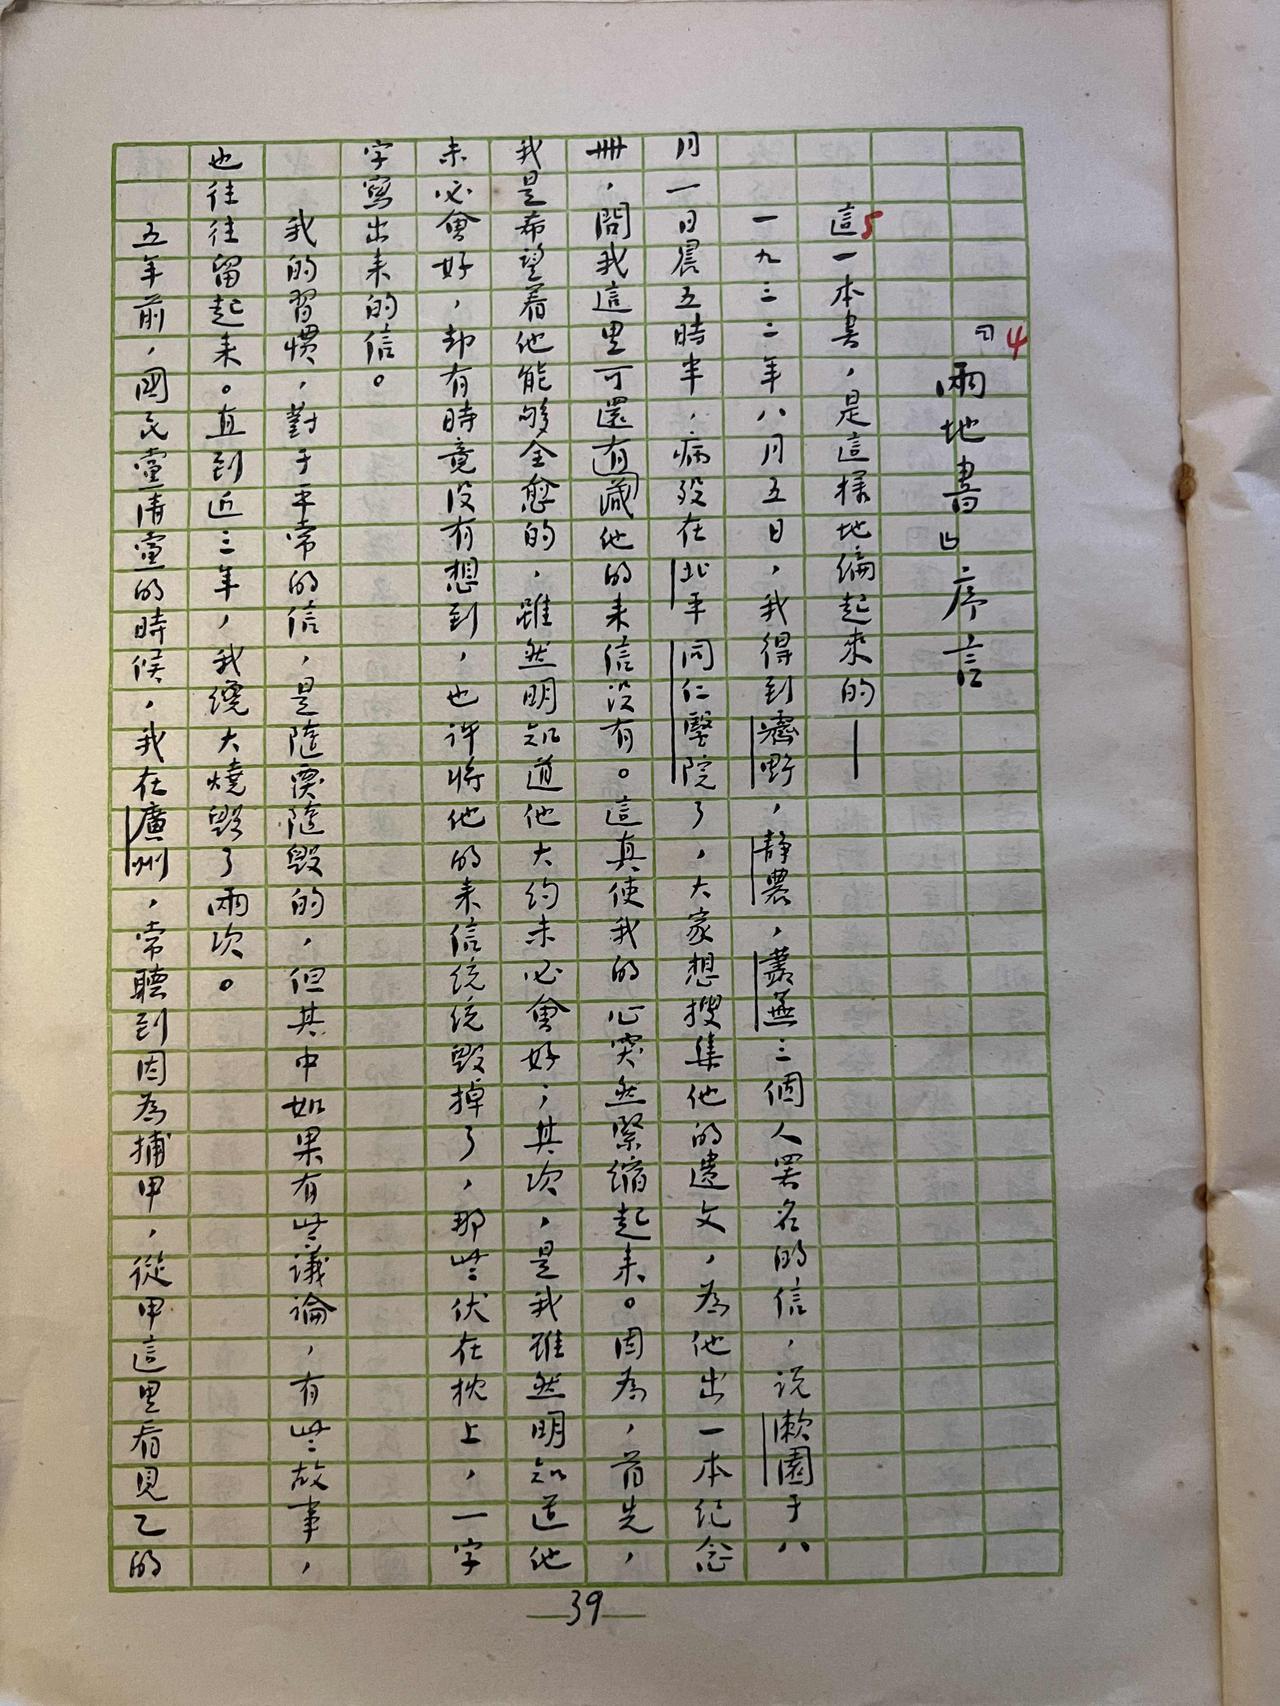 4
『兩地書』序言
5
這一本書，是這樣地編起來的——
一九三二年八月五日，我得到霽野，靜農，叢蕪三個人署名的信，説漱園于八
月一日晨五時半，病歿在北平同仁醫院了，大家想搜集他的遺文，為他出一本紀念
冊，問我這里可還有藏他的来信没有。這真使我的心突然緊縮起来。因為，首先，
我是希望着他能够全愈的，雖然明知道他大約未必會好；其次，是我雖然明知道他
未必會好，却有時竟没有想到，也許將他的来信統統毀掉了，那些伏在枕上，一字
字寫出来的信。
我的習慣，對于平常的信，是隨覆隨毀的，但其中如果有些議論，有些故事，
也往往留起来。直到近三年，我纔大燒毀了兩次。
五年前，國民黨清黨的時候，我在廣州，常聽到因為捕甲，從甲這里看見乙的
—39—